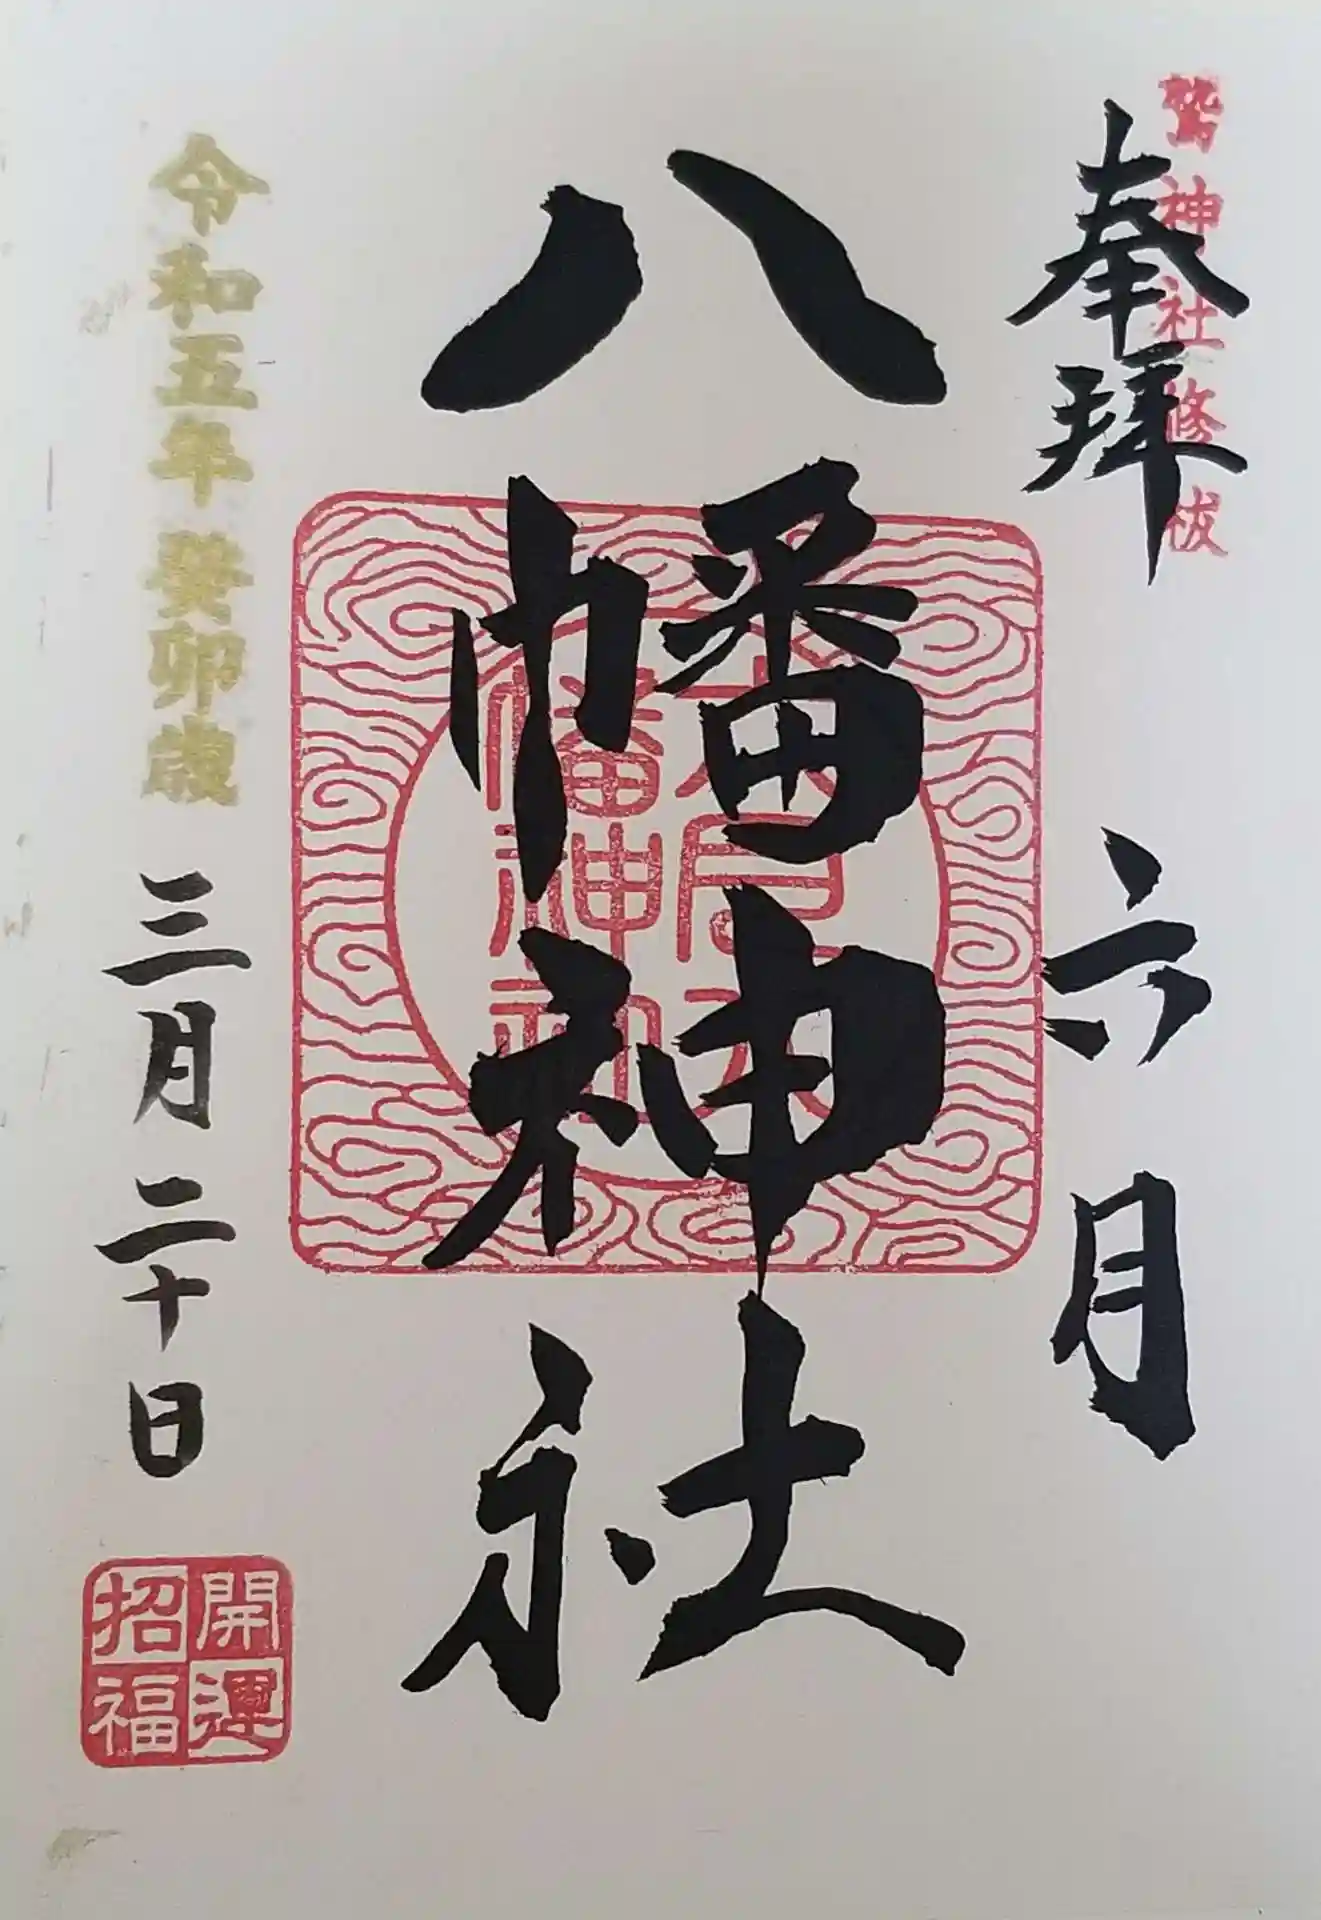 鷲神社修祓
奉拝
六月
八幡神社
六月八
幡神社
令和五年癸卯歳
三月二十日
開運
招福